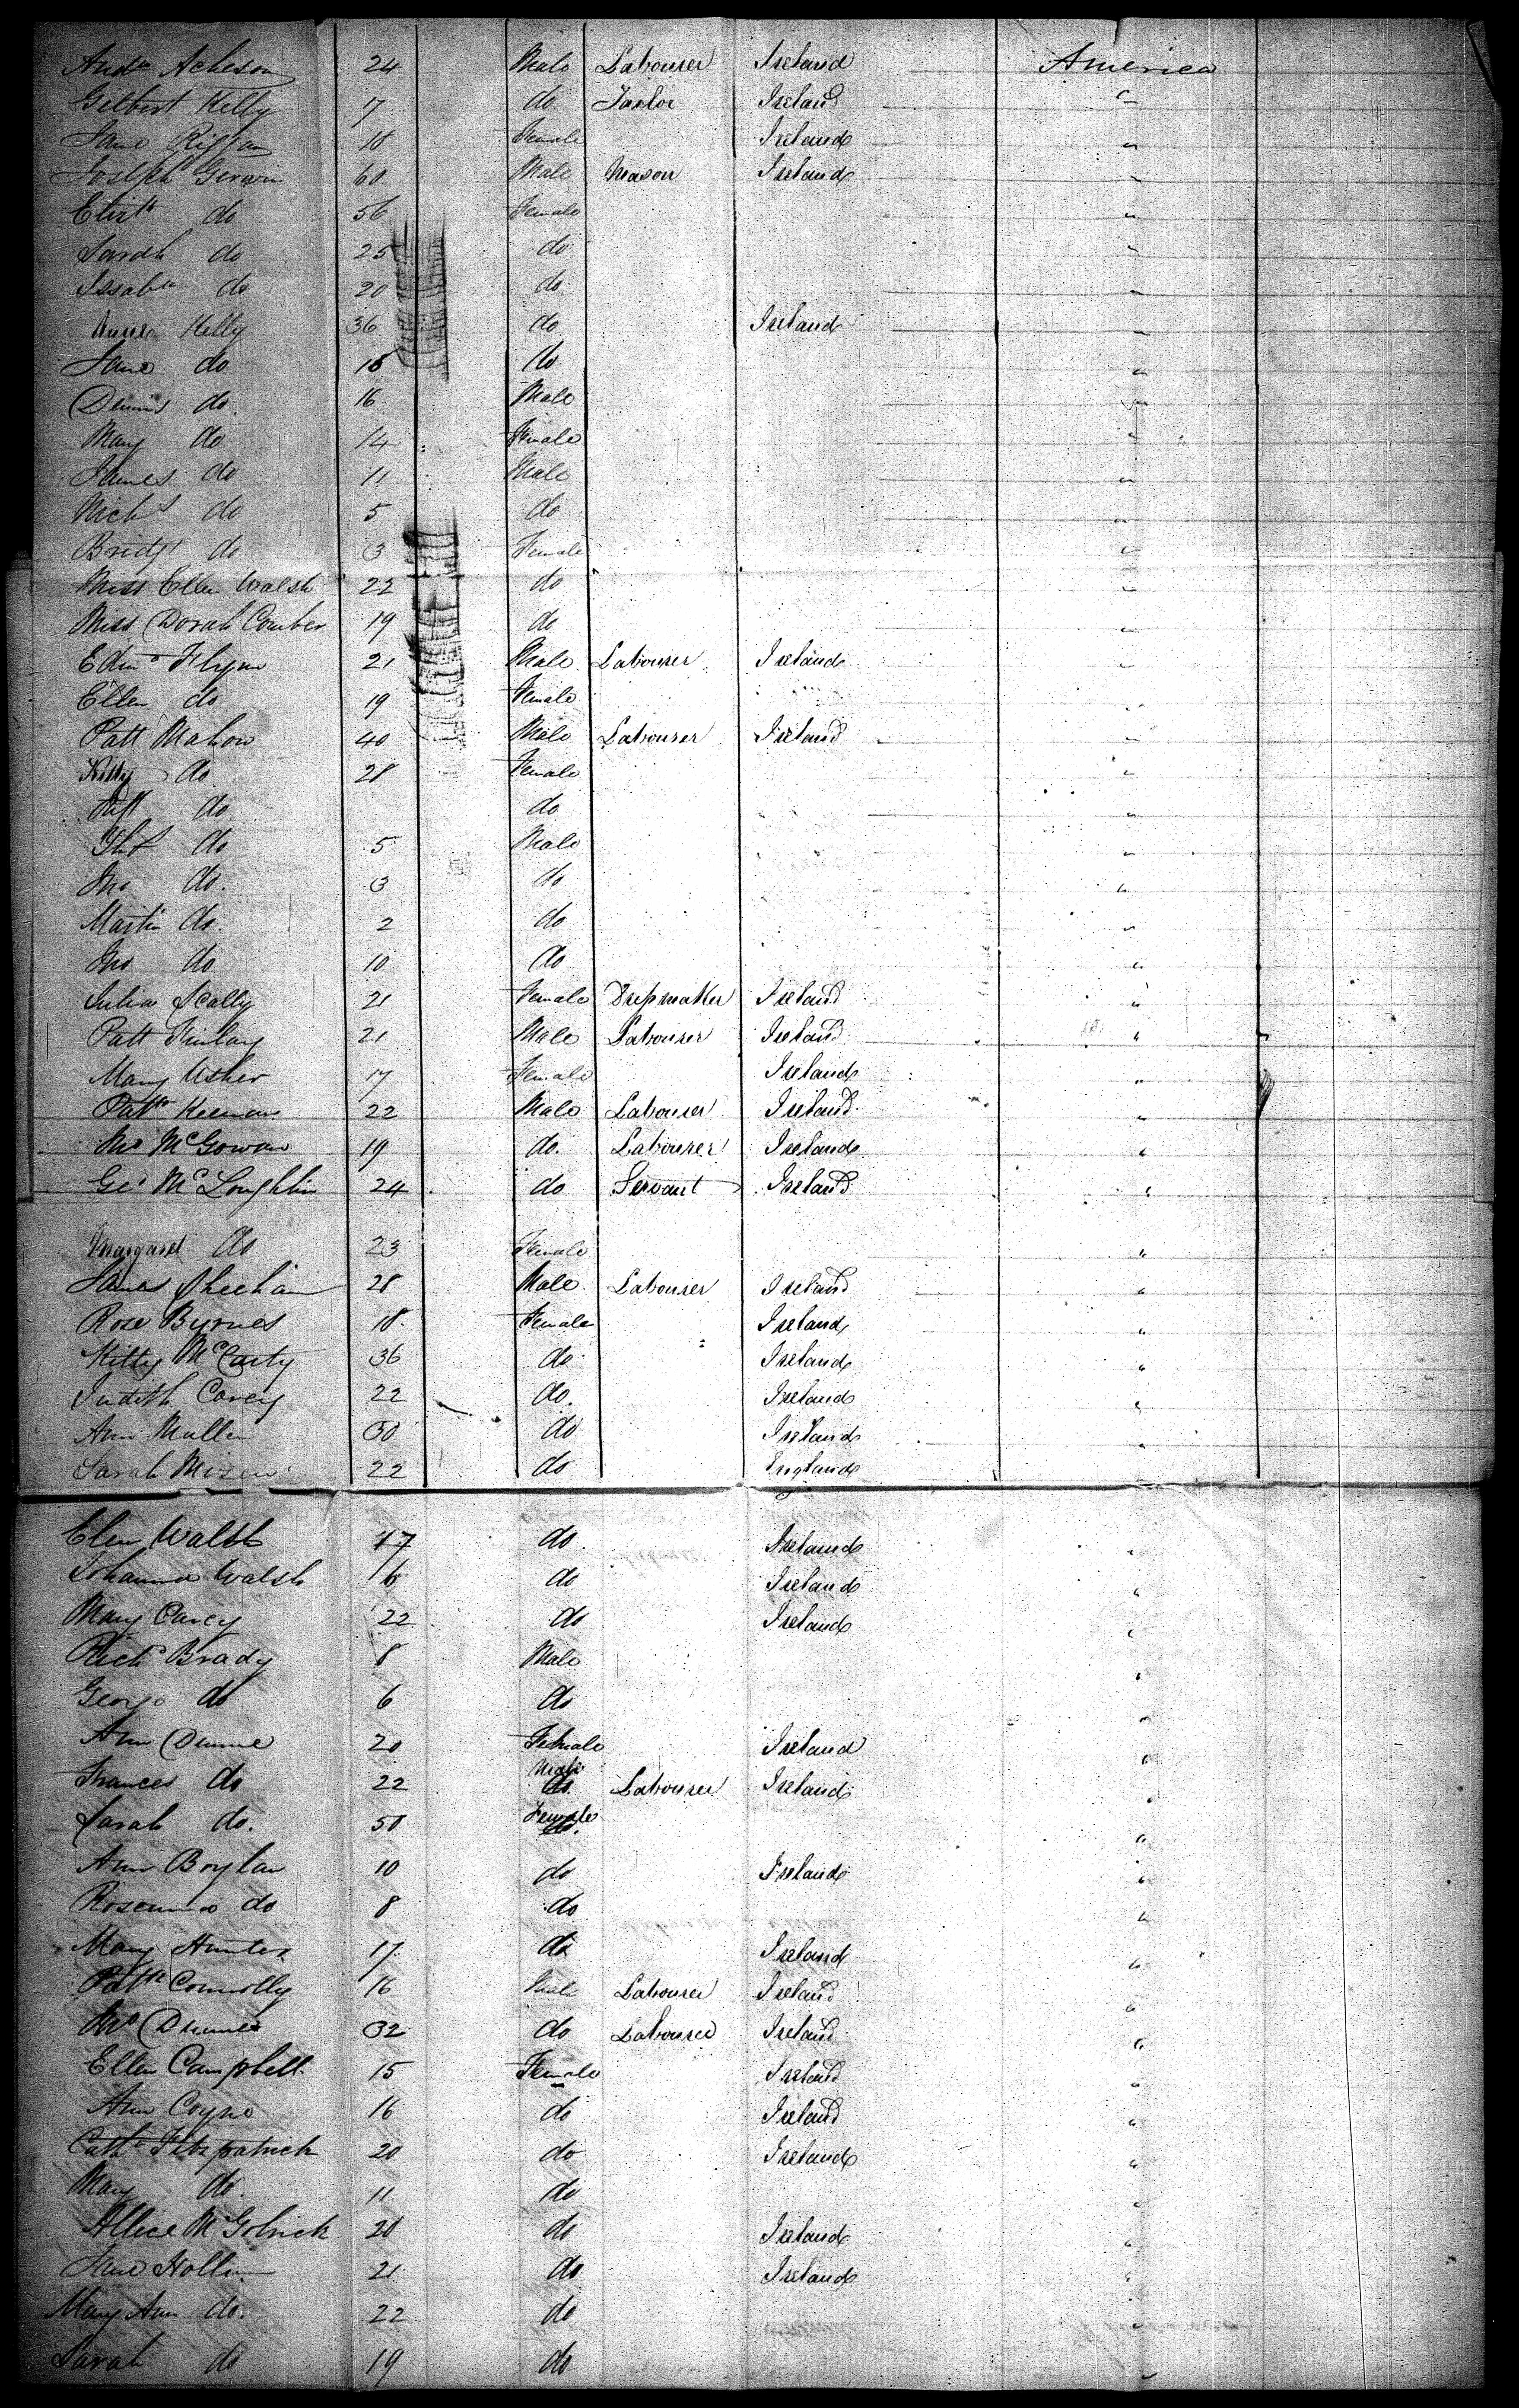 Andw Acheson 24 Male Labourer Ireland America
Gilbert Kelly 17 do Tailor Ireland "
Jane 18 Female Ireland "
Joseph Girvin 60 Male Mason Ireland "
Elizth do 56 Female "
Sarah do 25 do "
Issabla do 20 do "
Kelly 36 do Ireland "
Jane do 18 do "
Dennis do 16 Male "
Mary do 14 Female "
James do 11 Male "
Nichs do 5 do "
Bridgt do 3 Female "
Miss Ellen Walsh 22 do "
Miss Dorah Comber 19 do "
Edmd Flynn 21 Male Labourer Ireland "
Ellen do 19 Female "
Patt Mahon 40 Male Labourer Ireland "
Kitty do 28 Female "
do do "
Thos do 5 Male "
Jno do 3 do "
Martin do 2 do "
Jno do 10 do "
Julia Scally 21 Female Dressmaker Ireland "
Patt Finlay 21 Male Labourer Ireland "
Mary Usher 17 Female Ireland "
Pattk Keenan 22 Male Labourer Ireland "
Jno McGowan 19 do Labourer Ireland "
Geo McLoughlin 24 do Servant Ireland "
Margaret do 23 Female "
James Sheehan 28 Male Labourer Ireland "
Rose Byrnes 18 Female Ireland "
Kitty McCarty 36 do Ireland "
Judith Carey 22 do Ireland "
Ann Mullen 30 do Ireland "
Sarah Mizen 22 do England
Elen Walsh 17 do Ireland "
Johanna Walsh 16 do Ireland "
Mary Carey 22 do Ireland "
Richd Brady 8 Male "
George do 6 do "
Ann Dunne 20 Female Ireland "
Frances do 22 Male Labourer Ireland "
Sarah do 50 Female "
Ann Boylan 10 do Ireland "
do 8 do "
Mary Hunter 17 do Ireland "
Pattk Connolly 16 Male Labourer Ireland "
Jno Dunne 32 do Labourer Ireland "
Ellen Campbell 15 Female Ireland "
Ann Coyne 16 do Ireland "
Cathe Fitzpatrick 20 do Ireland "
Mary do 11 do "
Allice McGolrick 20 do Ireland "
Jane Hollin 21 do Ireland "
Mary Ann do 22 do
Sarah do 19 do "